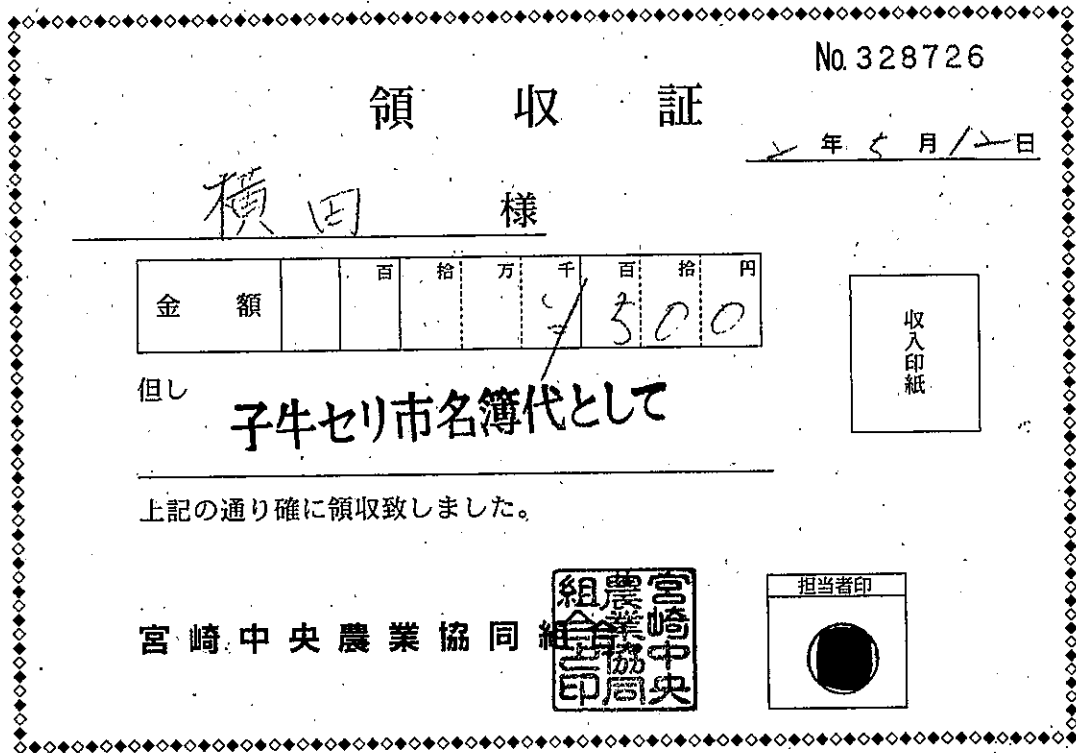 No.328726
領収証
2年5月12日
横田 様
金額 百拾万千百拾円
¥500
収入印紙
但し
子牛セリ市名簿代として
上記の通り確に領収致しました。
宮崎中央農業協同組合
宮崎中央農業協同組合之印
担当者印